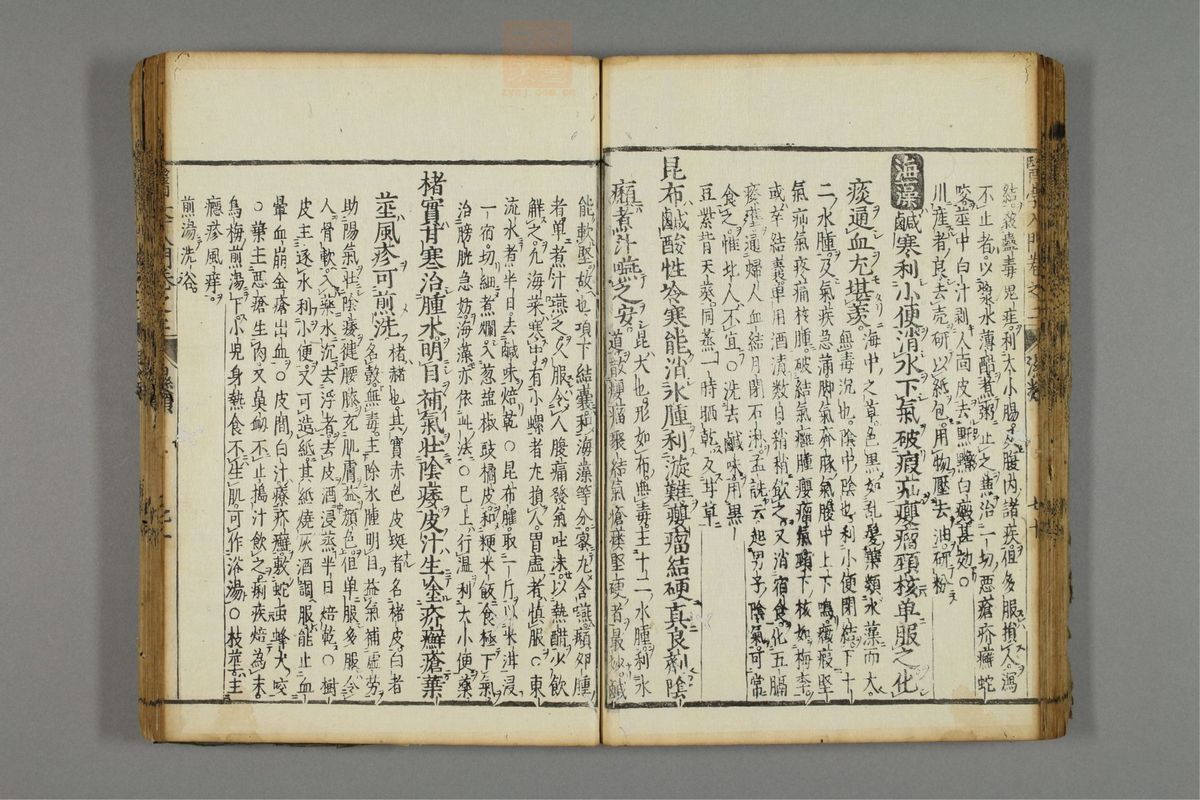 結蠱毒
不止者以漿水薄醋煮粥止之兼治一切惡瘡疥癬蛇
咬莖中白汁剝人面皮去䵟黯白癜甚効○
川産者良去殻研以紙包用物壓去油研粉
海藻鹹寒利小便消水下氣破瘕疝癭瘤頸核单服之化
痰通血尤堪羨
海中之草色黒如乱髮葉類水藻而大
無毒沉也陰中陰也利小便閉結下十
二水腫及氣疾急滿脚氣奔豚氣腹中上下鳴癥瘕堅
氣疝氣疼痛核腫破結氣癰腫癭瘤氣頸下核如梅李
或卒結囊单用酒漬数日稍稍飲之又消宿食化五膈
痰壅通婦人血結月閉石淋孟詵云起男子陰氣可常
食之惟北人不宜○洗去鹹味用黒
豆紫背天葵同蒸一時晒乾反甘草
昆布鹹酸性冷寒能消水腫利漩難癭瘤結硬真良劑陰
㿗煮汁嚥之安
昆大也形如布無毒主十二水腫利水
道散癭瘤聚結氣瘡瘻堅硬者最妙鹹
能軟堅故也項下結囊和海藻等分蜜丸含嚥㿗卵腫
者单煮汁嚥之久服令人腹痛發氣吐沫以熱醋少飲
解之凡海菜寒中有小螺者尤損人胃虚者慎服○東
流水煮半日去鹹味焙乾○昆布臛取一斤以米泔浸
一宿切細煮爛入葱塩椒豉橘皮和粳米飯食極下氣
治膀胱急妨海藻亦依此法○已上行温利大小便藥
楮實甘寒治腫水明目補氣壯陰痿皮汁生塗疥癬瘡葉
莖風疹可煎洗
楮赭也其實赤色皮斑者名楮皮白者
名穀無毒主除水腫明目益氣補虚劳
助陽氣壯陰痿健腰膝充肌膚益顔色但单服多服令
人骨軟入藥水沉去浮者去皮酒浸蒸半日焙乾○樹
皮主逐水利小便又可造紙其紙燒灰酒調服能止血
暈血崩金瘡出血○皮間白汁療疥癬敷蛇虫蜂犬咬
○葉主惡瘡生肉又鼻衂不止搗汁飲之痢疾焙為末
烏梅煎湯下小児身熱食不生肌可作浴湯○枝莖主
癮疹風痒
煎湯洗浴